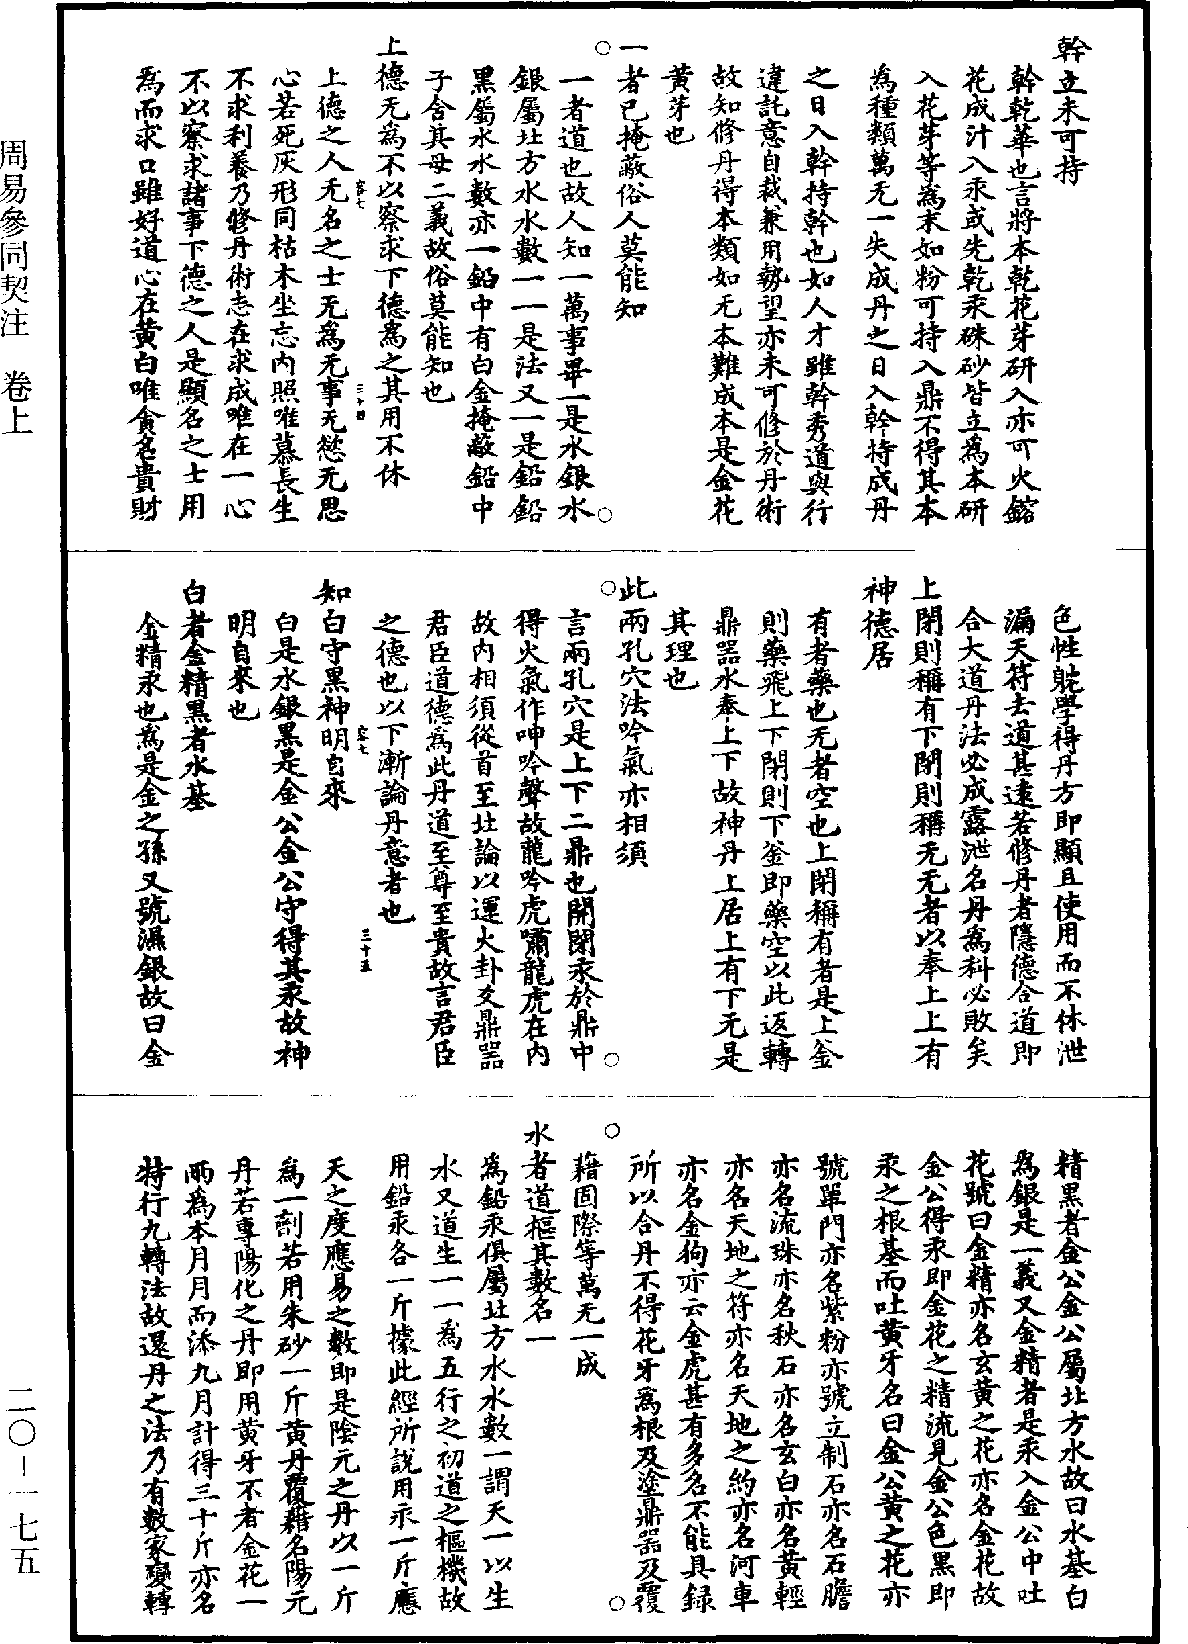 幹立未可持
幹乾華也言將本乾花芽研入亦可火鎔
花成汁入汞或先乾汞硃砂皆立為本研
入花芽等為末如粉可持入鼎不得其本
為種類萬无一失成丹之日入幹持成丹
之日入幹持幹也如人才雖幹秀道與行
違託意自裁兼用勢望亦未可脩於丹術
故知脩丹得本類如无本難成本是金花
黃芽也
一者已掩蔽俗人莫能知
一者道也故人知一萬事畢一是水銀水
銀屬北方水水數一一是法又一是鉛鉛
黑屬水水數亦一鉛中有白金掩蔽鉛中
子含其母二義故俗莫能知也
上德无為不以察求下德為之其用不休
容七 三十四
上德之人无名之士无為无事无愁无思
心若死灰形同枯木坐忘內照唯慕長生
不求利養乃修丹術志在求成唯在一心
不以察求諸事下德之人是顯名之士用
為而求口雖好道心在黃白唯貪名貴財
色性躭學得丹方即顯且使用而不休泄
漏天符去道甚遠若修丹者隱德合道即
合大道丹法必成露泄名丹為科必敗矣
上閉則稱有下閉則稱无无者以奉上上有
神德居
有者藥也无者空也上閉稱有者是上釜
則藥飛上下閉則下釜即藥空以此返轉
鼎器水奉上下故神丹上居上有下无是
其理也
此兩孔穴法吟氣亦相須
言兩孔穴是上下二鼎也開閉汞於鼎中
得火氣作呻吟聲故龍吟虎嘯龍虎在內
故內相須從首至北論以運火卦爻鼎器
君臣道德為此丹道至尊至貴故言君臣
之德也以下漸論丹意者也
容七 三十五
知白守黑神明自來
白是水銀黑是金公金公守得其汞故神
明自來也
白者金精黑者水基
金精汞也為是金之孫又號濕銀故曰金
精黑者金公金公屬北方水故曰水基白
為銀是一義又金精者是汞入金公中吐
花號曰金精亦名玄黃之花亦名金花故
金公得汞即金花之精流見金公色黑即
汞之根基而吐黃牙名曰金公黃之花亦
號單門亦名紫粉亦號立制石亦名石膽
亦名流珠亦名秋石亦名玄白亦名黃輕
亦名天地之符亦名天地之約亦名河車
亦名金狗亦云金虎甚有多名不能具錄
所以合丹不得花牙為根及塗鼎器及覆
藉固際等萬无一成
水者道樞其數名一
為鉛汞俱屬北方水水數一謂天一以生
水又道生一一為五行之初道之樞機故
用鉛汞各一斤據此經所說用汞一斤應
天之度應易之數即是陰元之丹以一斤
為一劑若用朱砂一斤黃丹覆藉名陽元
丹若專陽化之丹即用黃牙不者金花一
兩為本月月而添九月計得三十斤亦名
特行九轉法故還丹之法乃有數家變轉
周易參同契注 卷上
二〇—一七五